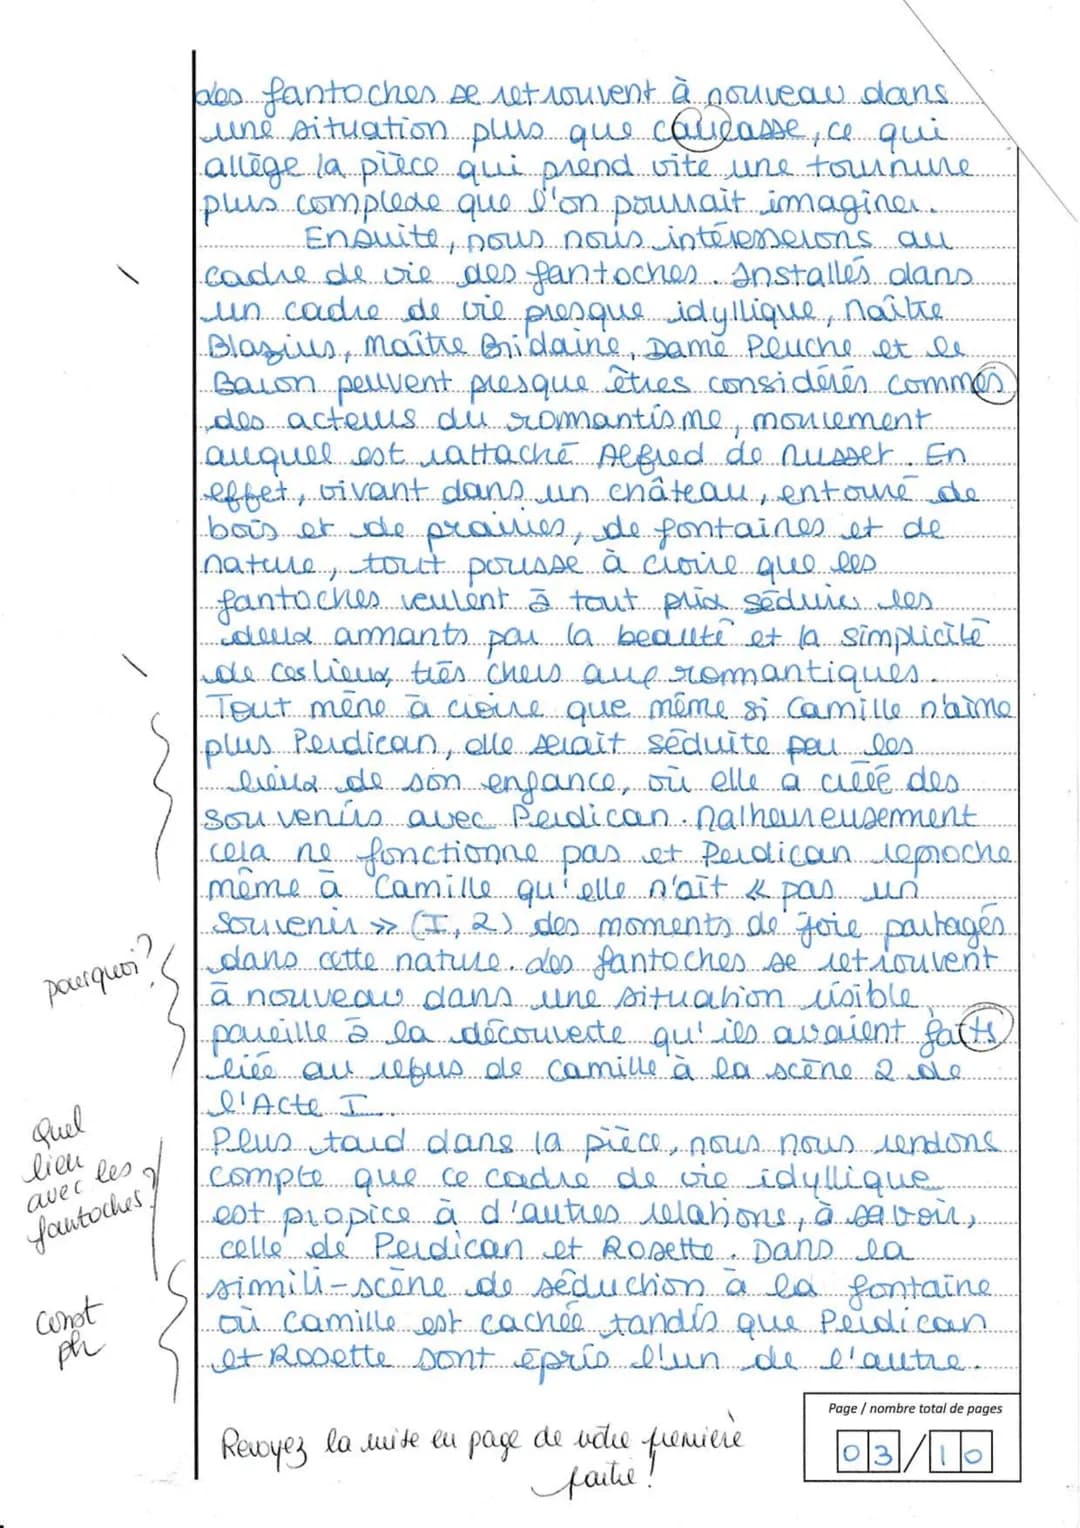 des fantoches se retrouvent à nouveau dans
une situation plus que caucasse, ce qui
allège la pièce qui prend vite une tournure
plus complexe que l'on pourrait imaginer.
Ensuite, nous nous intéresserons au
cadre de vie des fantoches. Installés dans
un cadre de vie presque idyllique, Maître
Blazius, Maître Bridaine, Dame Pluche et le
Baron peuvent presque êtres considérés commes
des acteurs du rommantisme, mouvement
auquel est rattaché Alfred de Musset. En
effet, vivant dans un château, entouré de
bois et de prairies, de fontaines et de
nature, tout pousse à croire que les
fantoches veulent à tout prix séduire les
deux ammants par la beauté et la simplicité
de ces lieux, très chers aux rommantiques.
Tout mène à croire que même si Camille n'aime
plus Perdican, elle serait séduite par les
lieux de son enfance, où elle a créé des
souvenirs avec Perdican. Malheureusement
cela ne fonctionne pas et Perdican reproche
même à Camille qu'elle n'ait « pas un
souvenir » (I, 2) des moments de joie partagés
dans cette nature. des fantoches se retrouvent
pourquoi?
à nouveau dans une situation risible
pareille à la découverte qu'ils avaient faits
liée au refus de Camille à la scène 2 de
l'Acte I.
Plus tard dans la pièce, nous nous rendons
Quel
lieu
avec les
fantoches?
compte que ce cadre de vie idyllique
est propice à d'autres relations, à savoir,
celle de Perdican et Rosette. Dans la
simili-scène de séduction à la fontaine
où Camille est cachée tandis que Perdican
const
ph
et Rosette sont épris l'un de l'autre.
Revoyez la mise en page de votre première
partie!
Page / nombre total de pages
03/10